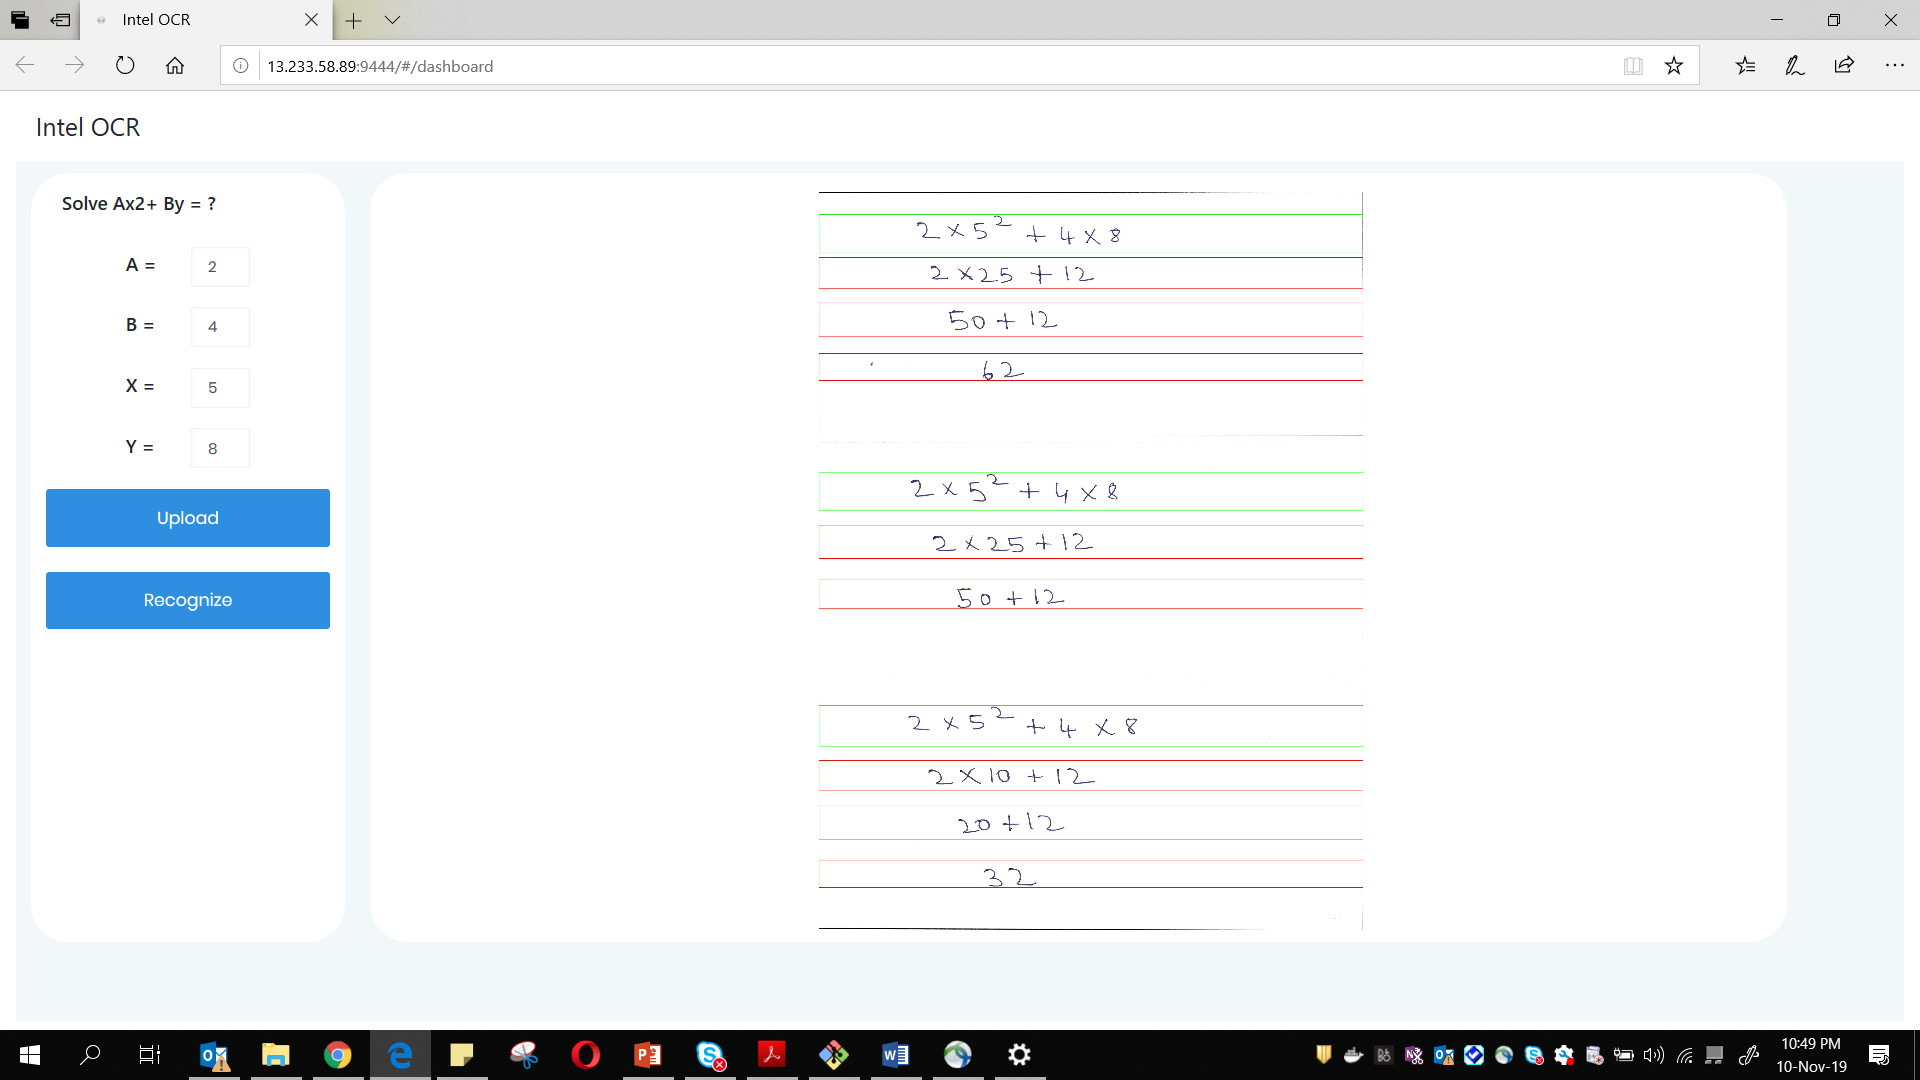 Intel OCR
13.233.58.89:9444/#/dashboard
Intel OCR
Solve Ax2+ By = ?
A = 2
B = 4
X = 5
Y = 8
Upload
Recognize
2 × 5² + 4 × 8
2 × 25 + 12
50 + 12
62
2 × 5² + 4 × 8
2 × 25 + 12
50 + 12
2 × 5² + 4 × 8
2 × 10 + 12
20 + 12
32
10:49 PM
10-Nov-19